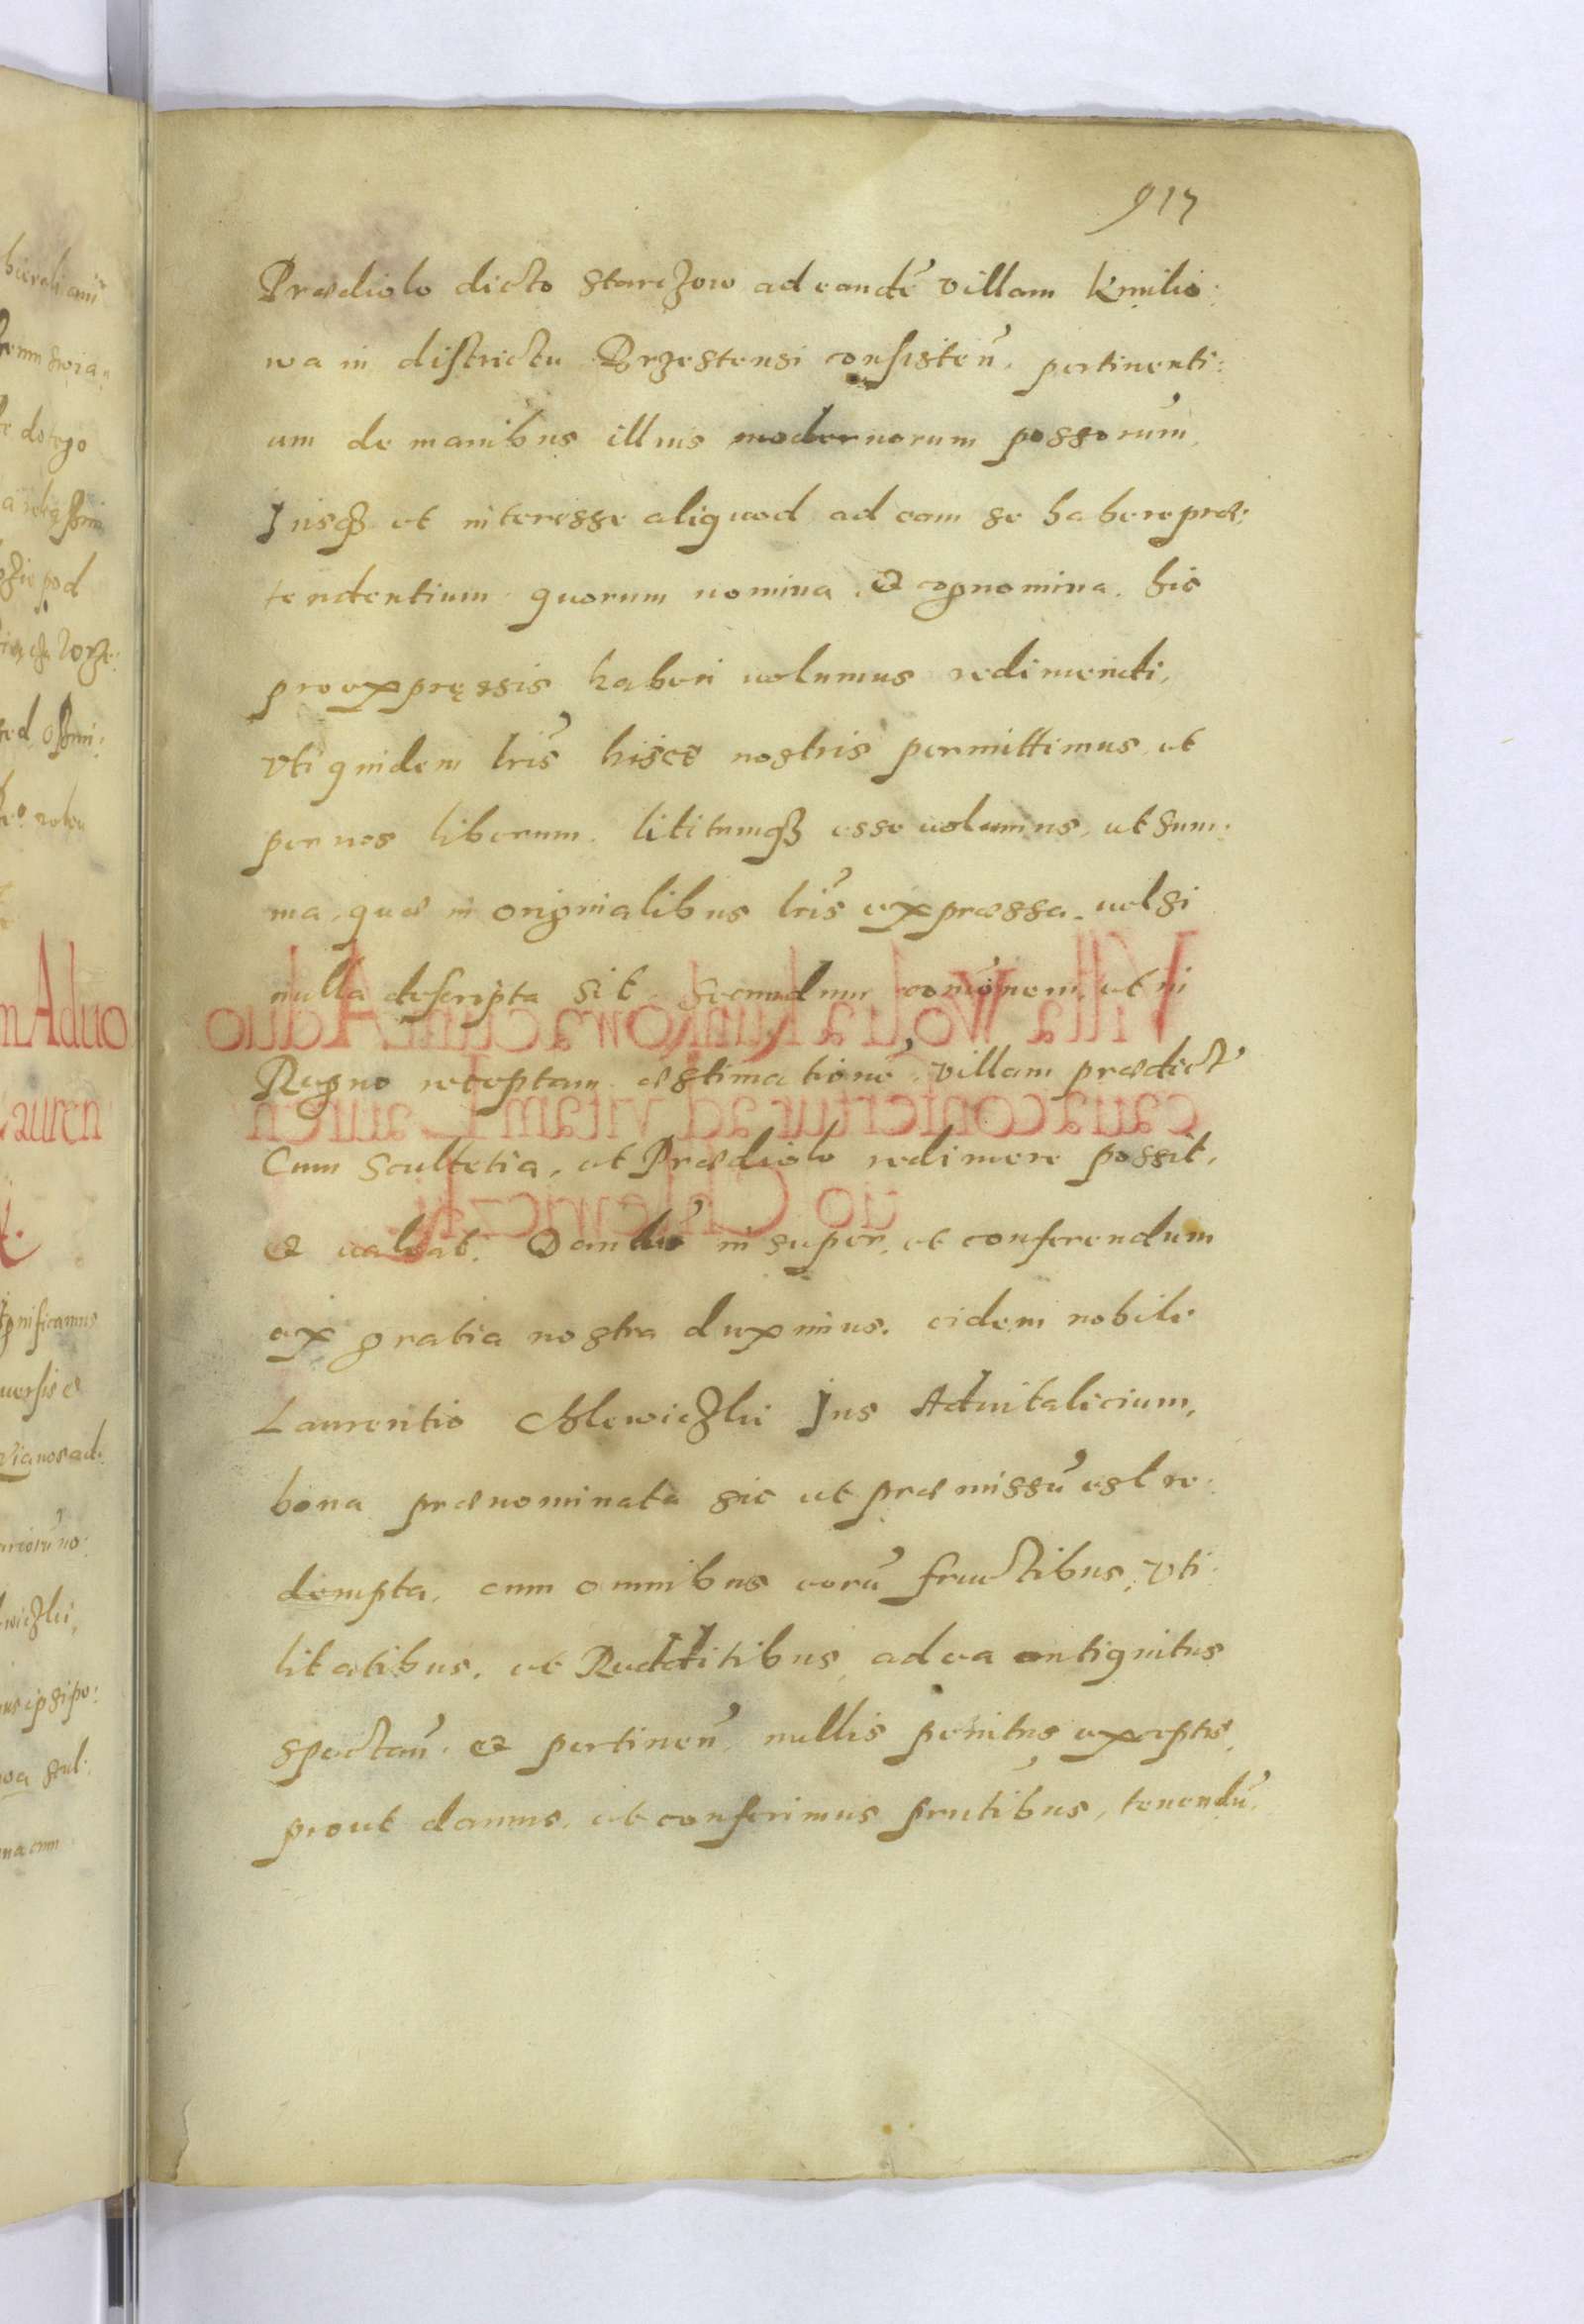 917
Prædiolo dicto Starczow ad eandē villam Kmilio:
wa in districtu Brzestensi consisteñ. pertinenti:
um de manibus illius modernorum possorum̃,
Jusq₃ et interesse aliquod ad eam se habere præ:
tendentium quorum nomina, & cognomina, his
pro expręssis haberi uolumus redimendi,
vti quidem lris̃ hisce nostris permittimus, et
per nos liberum, lititumq₃ esse uolumus, ut sum:
ma, quæ in originalibus lris̃ expræssa, uel si
nulla descripta sit secundum com̃unem, et in
Regno receptam æstimationē, villam prædict̃
Cum Scultetia, et Prædiolo redimere possit,
& ualeat. Dandū in super, et conferendum
ex gratia nostra duximus, eidem nobili
Laurentio Chlewiczki Jus Aduitalicium,
bona prænominata sic ut præmissū est re:
dempta, cum omnibus eorū fructibus, vti:
litatibus, et Redditibus, ad ea antiquitus
spectañ & pertineñ, nullis penitus exceptis,
prout damus, et conferimus prñtibus, tenendū,
m Aduo
Lauren